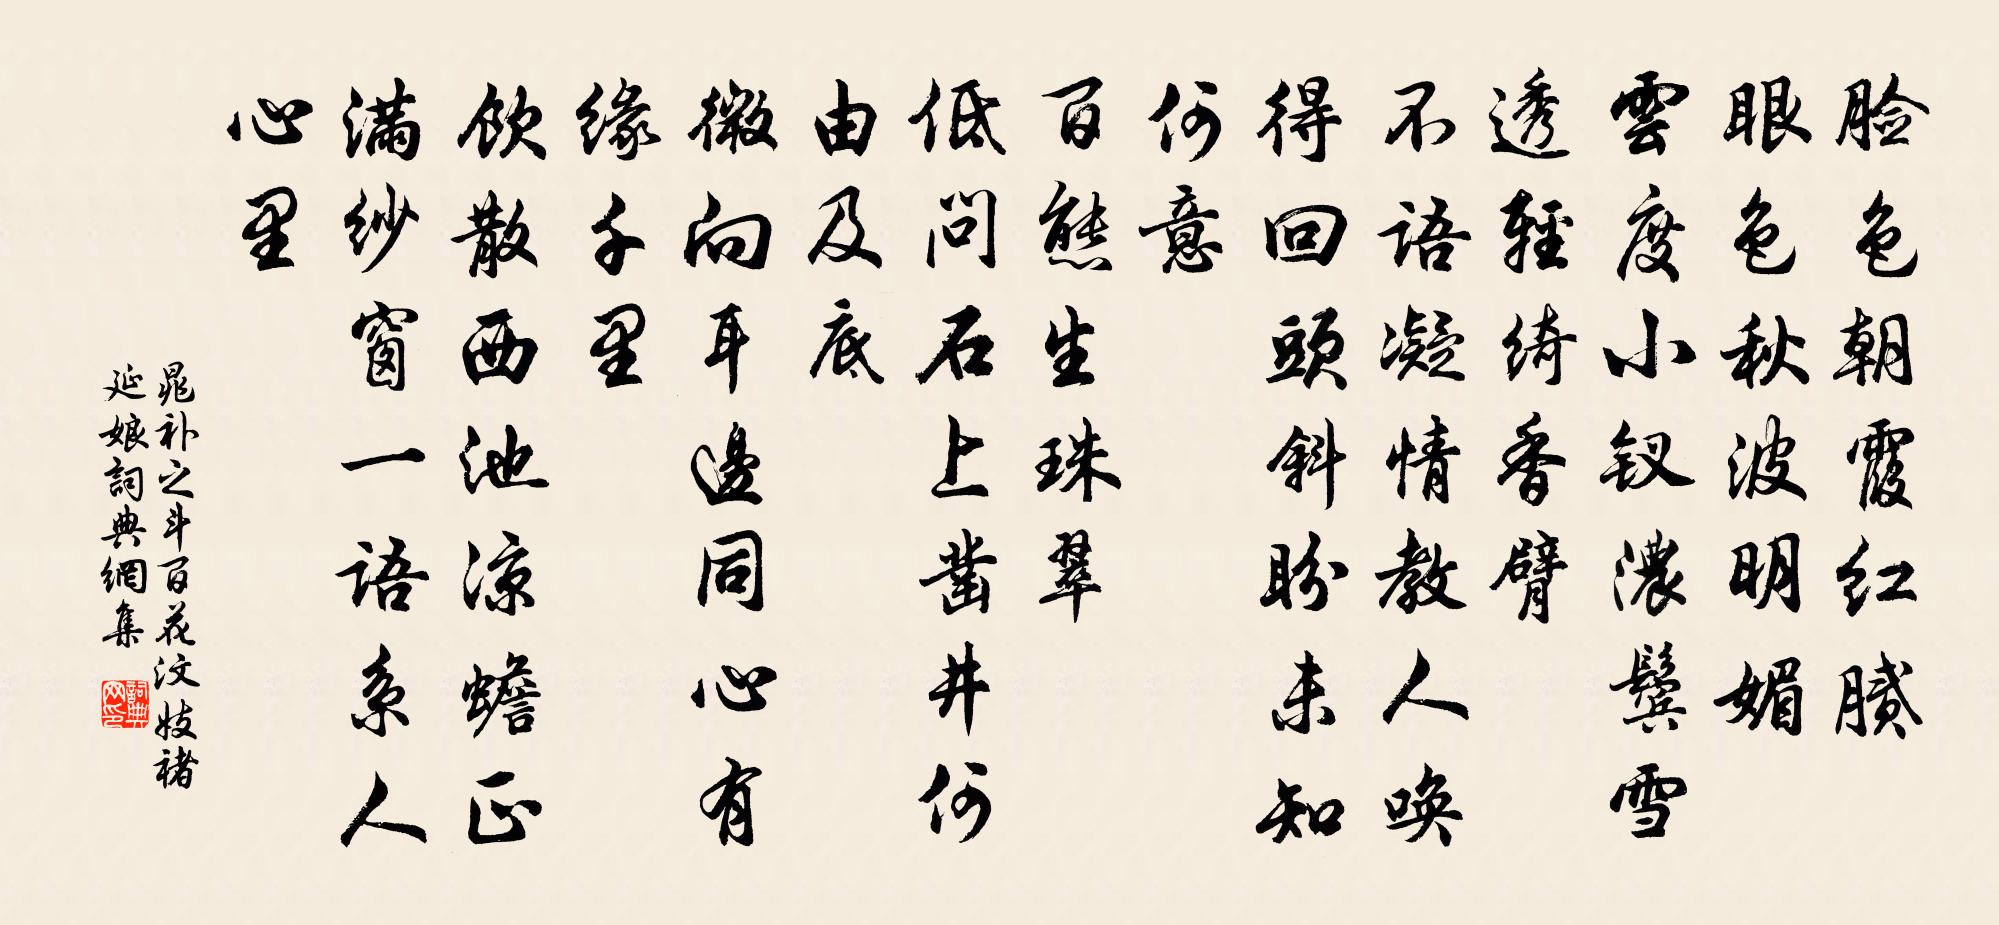 脸色朝霞红腻
眼色秋波明媚
雲度小钗濃鬓雪
透輕绮香臂
不语凝情教人唤
得回頭斜盼未知
何意
百態生珠翠
低问石上凿井何
由及底
微向耳邊同心有
缘千里
飲散西池凉蟾正
满纱窗一语系人
心里
晁补之斗百花汶妓褚
延娘詞典網集
詞典网印